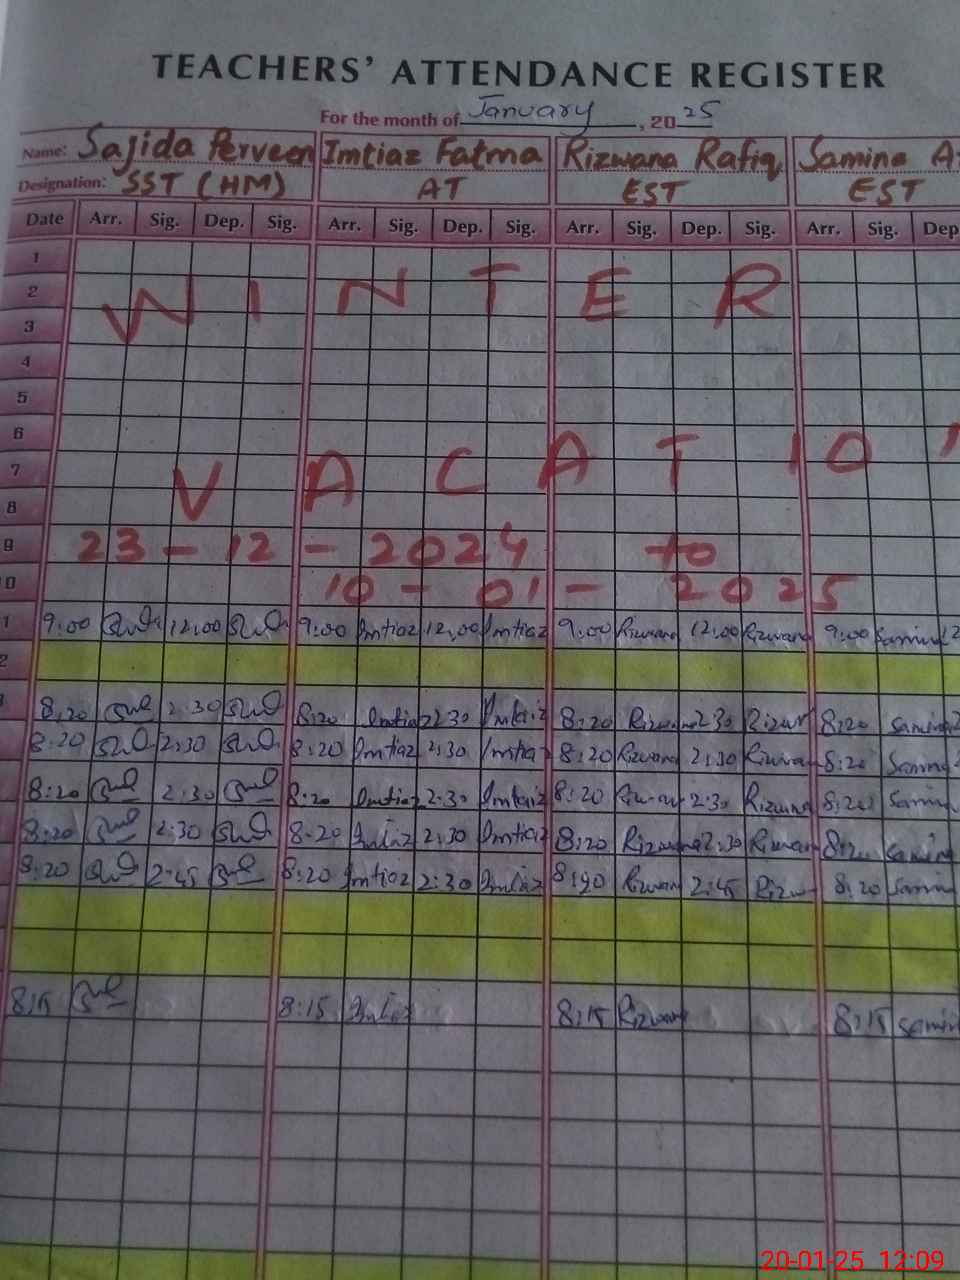 TEACHERS' ATTENDANCE REGISTER
For the month of January, 2025
Name: Sajida Perveen Imtiaz Fatma Rizwana Rafiq Samina
Designation: SST (HM) AT EST EST
Date Arr. Sig. Dep. Sig. Arr. Sig. Dep. Sig. Arr. Sig. Dep. Sig. Arr. Sig. Dep
1
2
3
WINTER
4
5
6
7
8
VACATIO
9 23-12-2024 to
0 10-01-2025
1 9:00 12:00 9:00 Imtiaz 12:00 Imtiaz 9:00 Rizwana 12:00 Rizwana 9:00 Samina
2
8:20 2:30 8:20 Imtiaz 2:30 Imtiaz 8:20 Rizwana 2:30 Rizwan 8:20 Samina
8:20 2:30 8:20 Imtiaz 2:30 Imtiaz 8:20 Rizwana 2:30 Rizwana 8:20 Samina
8:20 2:30 8:20 Imtiaz 2:30 Imtiaz 8:20 2:30 Rizwana 8:20 Samina
8:20 2:30 8:20 Imtiaz 2:30 Imtiaz 8:20 Rizwana 2:30 Rizwana 8:20 Samina
8:20 2:45 8:20 Imtiaz 2:30 Imtiaz 8:20 Rizwan 2:45 Rizw 8:20 Samina
8:15 8:15 Imtiaz 8:15 Rizwana 8:15 Samina
20-01-25 12:09